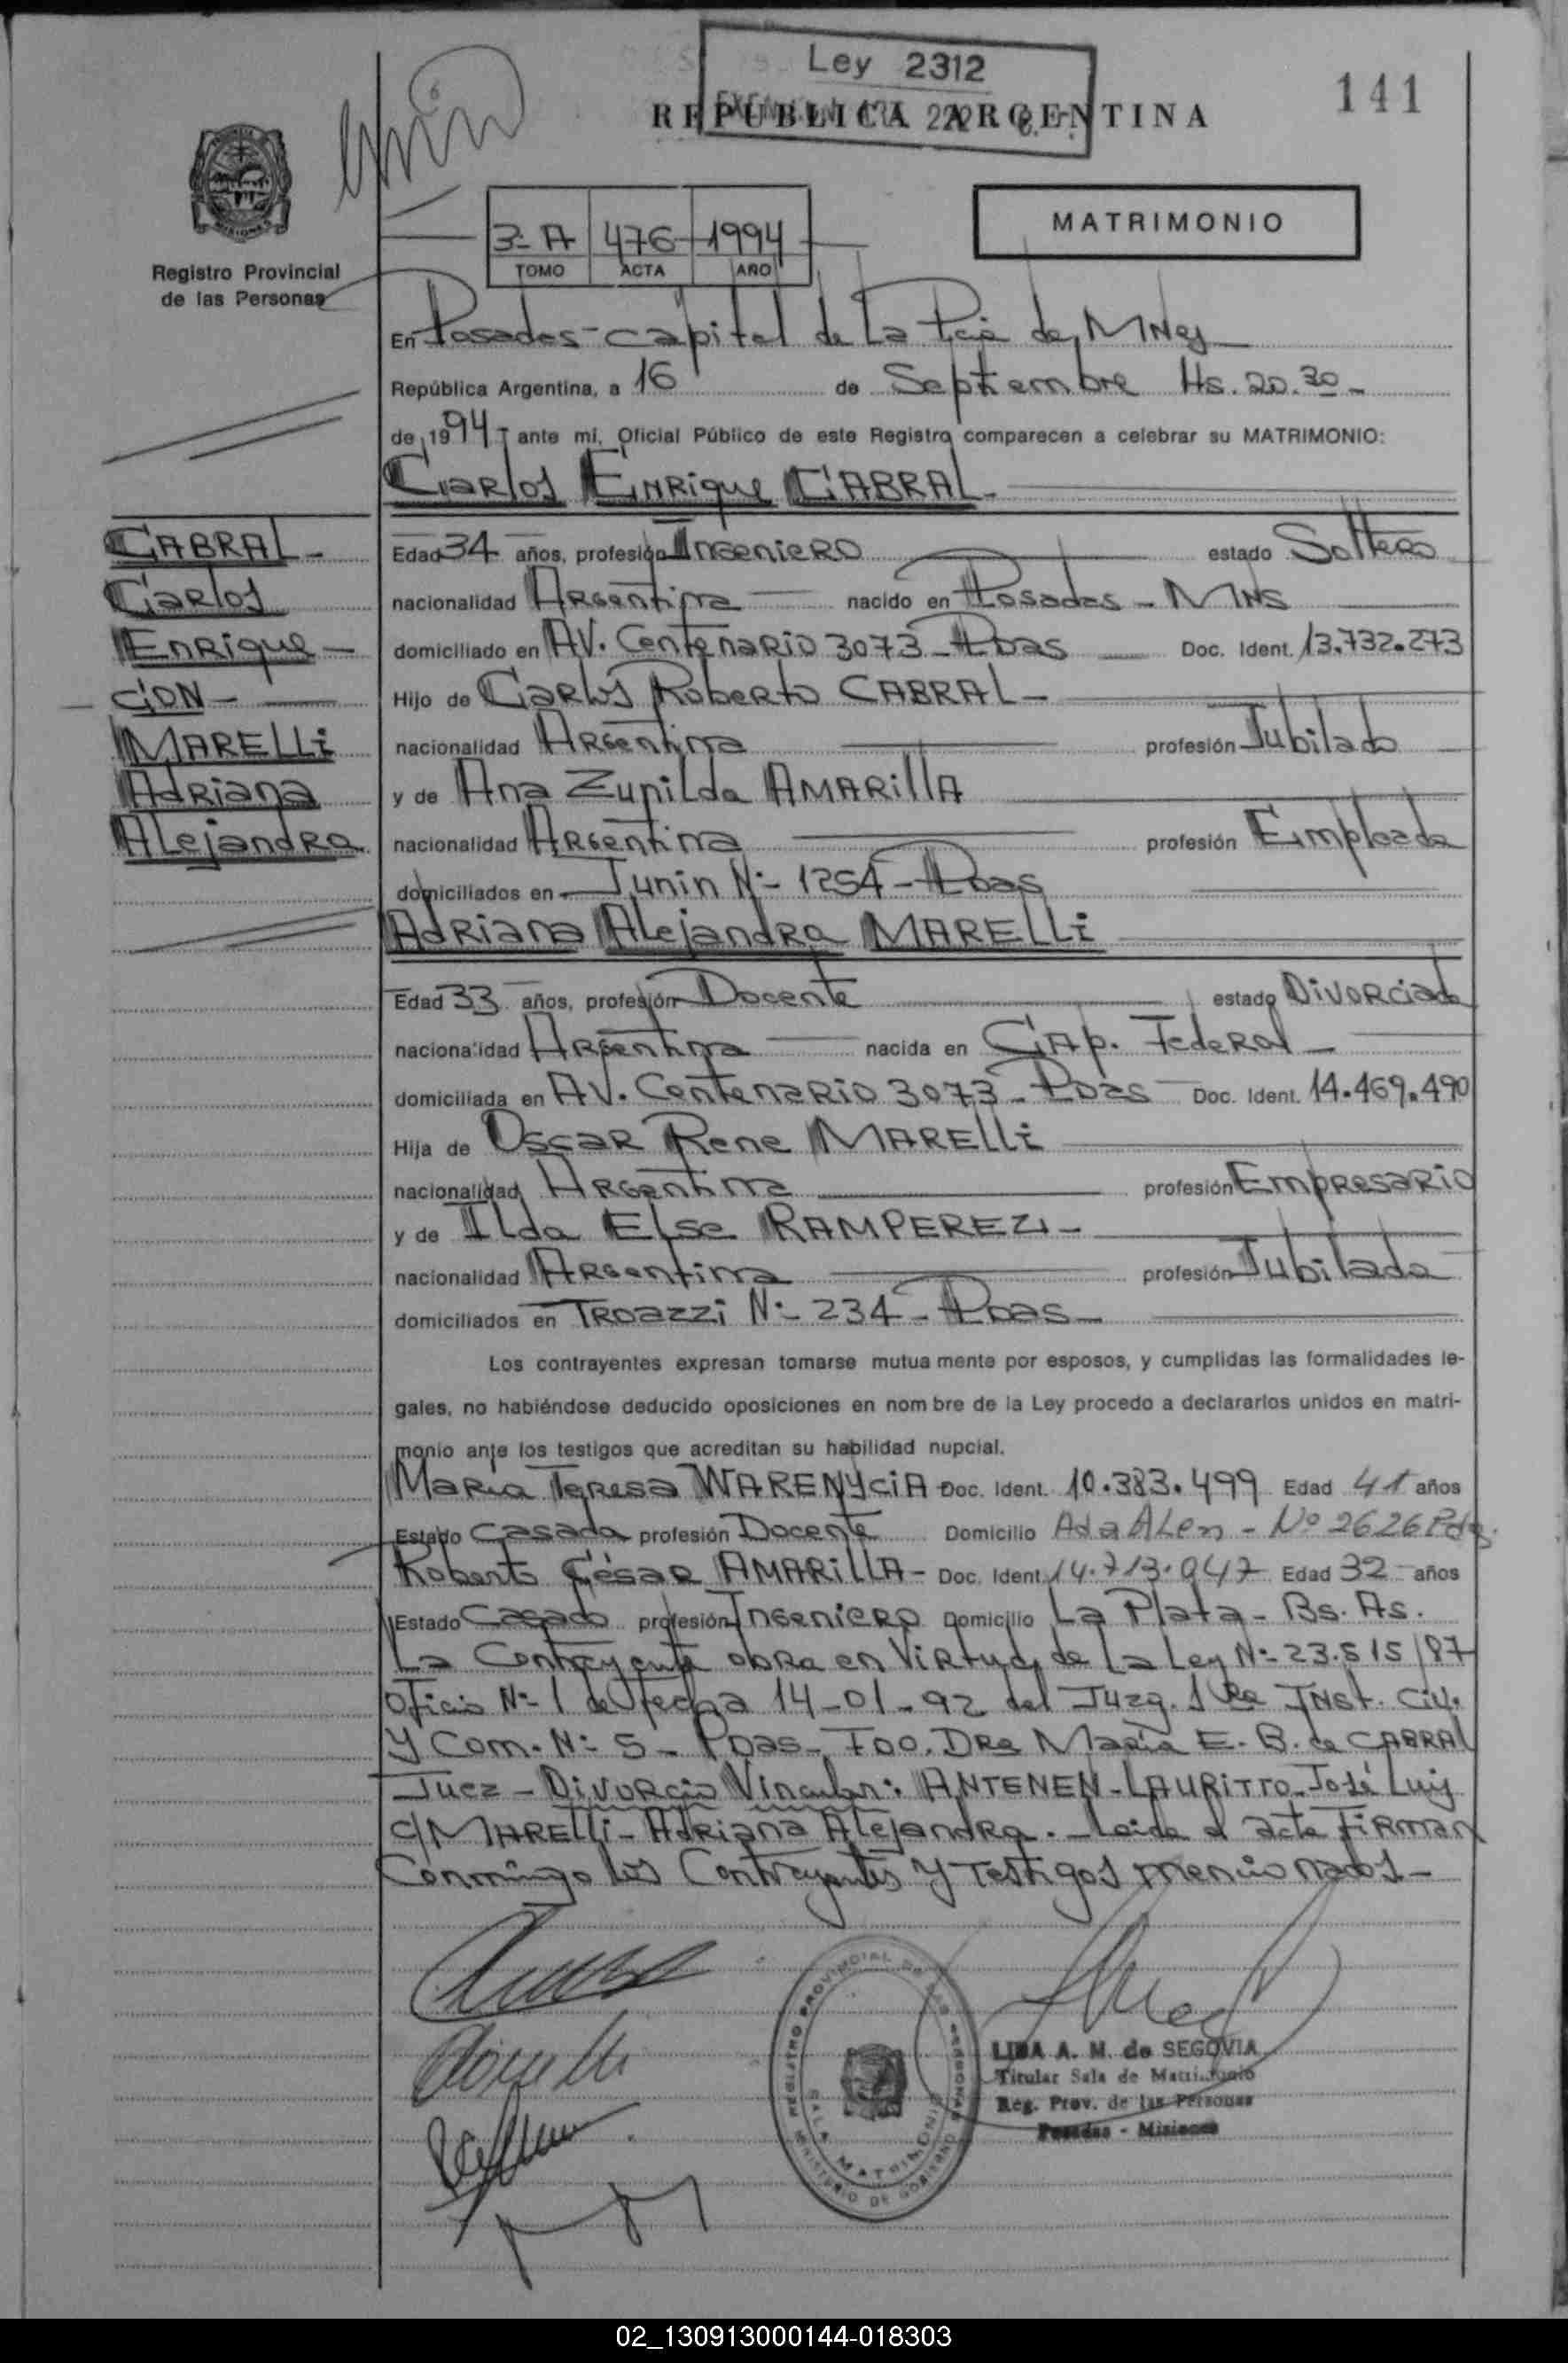 Ley 2312
REPUBLICA ARGENTINA
141
MISIONES
Registro Provincial
de las Personas
3-A 476 1994
TOMO ACTA AÑO
MATRIMONIO
En Posadas-capital de La Pcia de, MNes
República Argentina, a 16 de Septiembre Hs. 20.30-
de 1994- ante mí, Oficial Público de este Registro comparecen a celebrar su MATRIMONIO:
Carlos Enrique CABRAL-
CABRAL-
Carlos
Enrique-
CON-
MARELLi
Adriana
Alejandra
Edad 34 años, profesión Ingeniero estado Soltero
nacionalidad Argentina nacido en Posadas - MNS
domiciliado en AV. Centenario 3073-Pdas Doc. Ident. 13.732.273
Hijo de Carlos Roberto CABRAL-
nacionalidad Argentina profesión Jubilado
y de Ana Zunilda AMARillA
nacionalidad Argentina profesión Empleada
domiciliados en Junin N:- 1254-Pdas
Adriana Alejandra MARELLi
Edad 33 años, profesión Docente estado Divorciada
nacionalidad Argentina nacida en CAp. Federal-
domiciliada en AV. Centenario 3073-Pdas Doc. Ident. 14.469.490
Hija de Oscar Rene MARELLi
nacionalidad Argentina profesión Empresario
y de Ilda Elsa RAMPEREZI-
nacionalidad Argentina profesión Jubilada
domiciliados en TROazzi N:- 234-Pdas-
Los contrayentes expresan tomarse mutua mente por esposos, y cumplidas las formalidades le-
gales, no habiéndose deducido oposiciones en nom bre de la Ley procedo a declararlos unidos en matri-
monio ante los testigos que acreditan su habilidad nupcial.
Maria Teresa WARENYCiA Doc. Ident. 10.383.499 Edad 41 años
Estado Casada profesión Docente Domicilio Ada ALem - Nº 2626 Pdas.
Roberto César AMARiLLA- Doc. Ident. 14.713.047 Edad 32 años
Estado Casado profesión Ingeniero Domicilio La Plata- Bs. As.
La Contrayente obra en Virtud de la Ley N:- 23.515/87
Oficio N:- 1 de fecha 14-01-92 del Juzg. 1Ra INSt. Civ.
y Com. N: 5- Pdas- Fdo. DRa María E. B. de CABRAL
Juez - Divorcio Vincular: ANTENEN-LAURITTO-José Luis
c/MARELLi-Adriana Alejandra.- Leida el acta Firman
Conmingo los Contrayentes y Testigos mencionados-
REGISTRO PROVINCIAL DE LAS PERSONAS
SALA MATRIMONIO
MINISTERIO DE GOBIERNO
LIDA A. M. de SEGOVIA
Titular Sala de Matrimonio
Reg. Prov. de las Personas
Posadas - Misiones
02_130913000144-018303